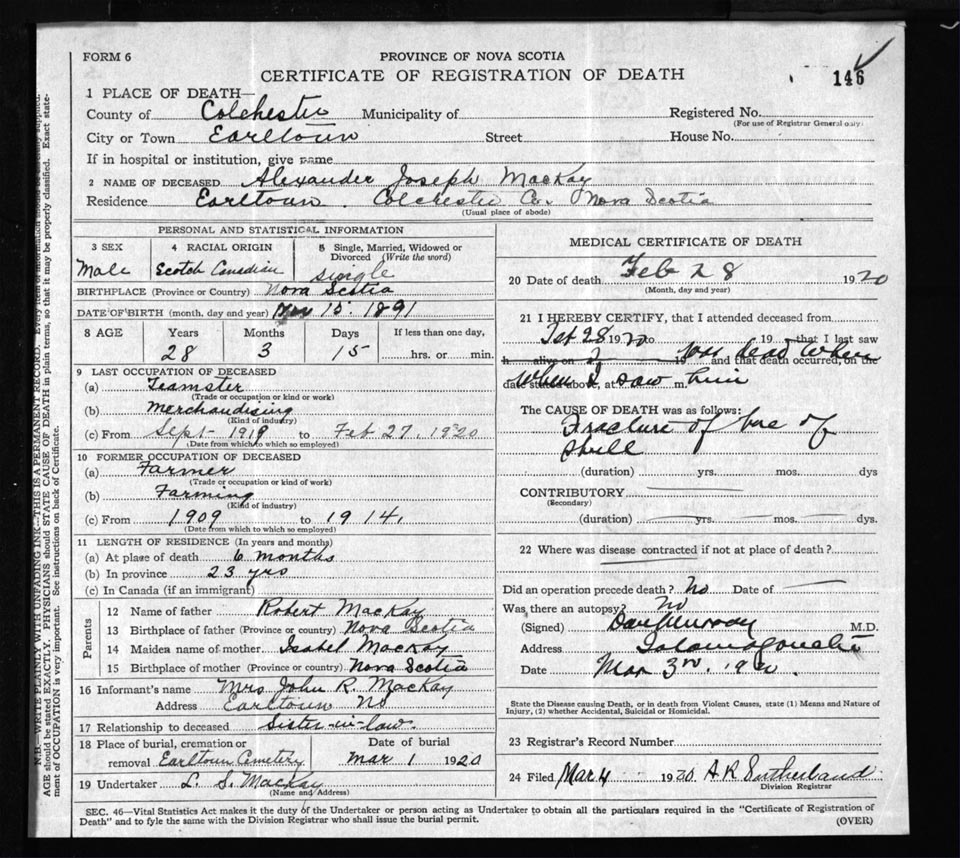 FORM 6
PROVINCE OF NOVA SCOTIA
CERTIFICATE OF REGISTRATION OF DEATH
146
1 PLACE OF DEATH—
County of Colchester Municipality of Registered No.
(For use of Registrar General only)
City or Town Earltown Street House No.
If in hospital or institution, give name
2 NAME OF DECEASED Alexander Joseph MacKay
Residence Earltown. Colchester Co. Nova Scotia
(Usual place of abode)
PERSONAL AND STATISTICAL INFORMATION
3 SEX 4 RACIAL ORIGIN 5 Single, Married, Widowed or Divorced (Write the word)
Male Scotch Canadian single
BIRTHPLACE (Province or Country) Nova Scotia
DATE OF BIRTH (month, day and year) 15 1891
8 AGE Years Months Days If less than one day,
28 3 15 hrs. or min.
9 LAST OCCUPATION OF DECEASED
(a) Teamster
(Trade or occupation or kind or work)
(b) Merchandising
(Kind of industry)
(c) From Sept 1919 to Feb 27, 1920
(Date from which to which so employed)
10 FORMER OCCUPATION OF DECEASED
(a) Farmer
(Trade or occupation or kind of work)
(b) Farming
(Kind of industry)
(c) From 1909 to 1914.
(Date from which to which so employed)
11 LENGTH OF RESIDENCE (In years and months)
(a) At place of death 6 months
(b) In province 23 yrs
(c) In Canada (if an immigrant)
Parents
12 Name of father Robert MacKay
13 Birthplace of father (Province or country) Nova Scotia
14 Maiden name of mother Isabel MacKay
15 Birthplace of mother (Province or country) Nova Scotia
16 Informant's name Mrs John R. MacKay
Address Earltown NS
17 Relationship to deceased Sister-in-law.
18 Place of burial, cremation or removal Earltown Cemetery Date of burial Mar 1 1920
19 Undertaker L. S. MacKay
(Name and Address)
MEDICAL CERTIFICATE OF DEATH
20 Date of death Feb 28 1920
(Month, day and year)
21 I HEREBY CERTIFY, that I attended deceased from
Feb 28 1920 19 that I last saw
h alive on 19 and that death occurred, on the was dead when
date stated above, at m. When I saw him
The CAUSE OF DEATH was as follows:
Fracture of bae of
Skull
(duration) yrs. mos. dys
CONTRIBUTORY
(Secondary)
(duration) yrs. mos. dys.
22 Where was disease contracted if not at place of death?
Did an operation precede death? No Date of
Was there an autopsy? No
(Signed) Dan Murray M.D.
Address Tatamagouche
Date Mar 3rd. 1920.
State the Disease causing Death, or in death from Violent Causes, state (1) Means and Nature of Injury, (2) whether Accidental, Suicidal or Homicidal.
23 Registrar's Record Number
24 Filed Mar 4 1920 A R Sutherland
Division Registrar
SEC. 46—Vital Statistics Act makes it the duty of the Undertaker or person acting as Undertaker to obtain all the particulars required in the "Certificate of Registration of
Death" and to fyle the same with the Division Registrar who shall issue the burial permit.
(OVER)
N. B. WRITE PLAINLY WITH UNFADING INK—THIS IS A PERMANENT RECORD. Every item of information should be carefully supplied.
AGE should be stated EXACTLY. PHYSICIANS should STATE CAUSE OF DEATH in plain terms, so that it may be properly classified. Exact state-
ment of OCCUPATION is very important. See instructions on back of Certificate.